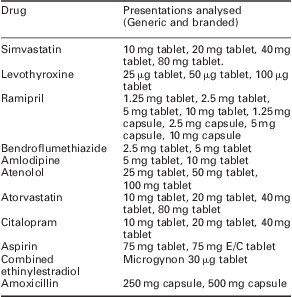 Drug Presentations analysed
(Generic and branded)
Simvastatin 10 mg tablet, 20 mg tablet, 40 mg
tablet, 80 mg tablet.
Levothyroxine 25 µg tablet, 50 µg tablet, 100 µg
tablet
Ramipril 1.25 mg tablet, 2.5 mg tablet,
5 mg tablet, 10 mg tablet, 1.25 mg
capsule, 2.5 mg capsule, 5 mg
capsule, 10 mg capsule
Bendroflumethiazide 2.5 mg tablet, 5 mg tablet
Amlodipine 5 mg tablet, 10 mg tablet
Atenolol 25 mg tablet, 50 mg tablet,
100 mg tablet
Atorvastatin 10 mg tablet, 20 mg tablet, 40 mg
tablet, 80 mg tablet
Citalopram 10 mg tablet, 20 mg tablet, 40 mg
tablet
Aspirin 75 mg tablet, 75 mg E/C tablet
Combined Microgynon 30 µg tablet
ethinylestradiol
Amoxicillin 250 mg capsule, 500 mg capsule